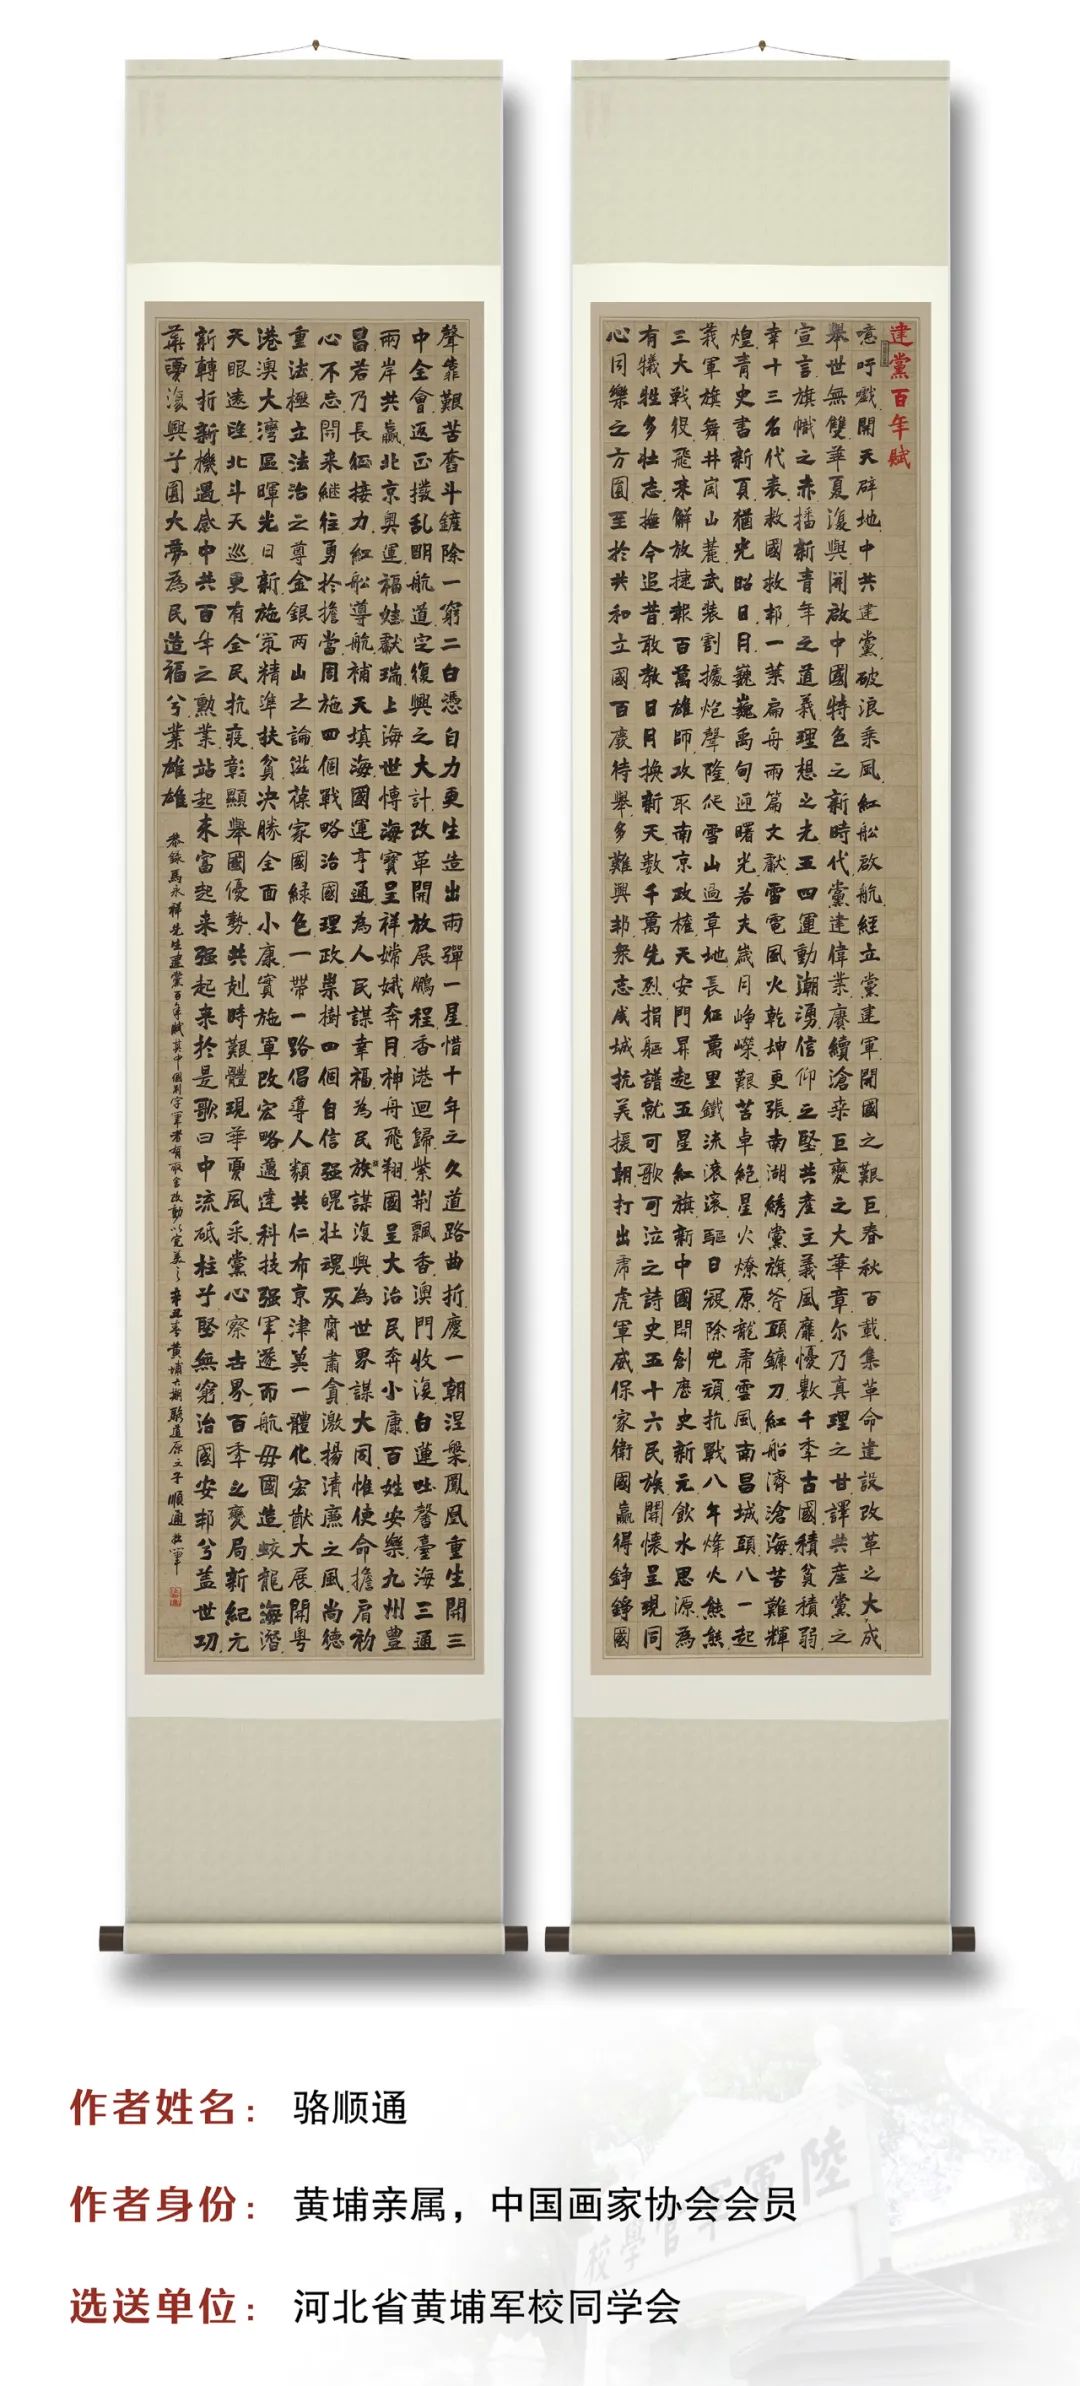 建黨百年賦
噫吁戲開天辟地中共建黨破浪乘風紅船啟航經立黨建軍開國之艱巨春秋百載集革命建設改革之大成
舉世無雙華夏復興開啟中國特色之新時代黨建偉業賡續滄桑巨變之大華章尔乃真理之甘譯共產黨之
宣言旗幟之赤播新青年之道義理想之光五四運動潮湧信仰之堅共產主義風靡憂數千年古國積貧積弱
幸十三名代表救國救邦一葉扁舟兩篇文獻雪電風火乾坤更張南湖綉黨旗斧頭鐮刀紅船濟滄海苦難輝
煌青史書新頁猶光昭日月巍巍禹甸迎曙光若夫歲月崢嶸艱苦卓絕星火燎原龍虎雲風南昌城頭八一起
義軍旗舞井崗山麓武裝割據炮聲隆爬雪山過草地長征萬里鐵流滾滾驅日寇除兇頑抗戰八年烽火熊熊
三大戰役飛來解放捷報百萬雄師攻取南京政權天安門昇起五星紅旗新中國開創歷史新元飲水思源為
有犧牲多壯志撫今追昔敢教日月換新天數千萬先烈捐軀譜就可歌可泣之詩史五十六民族開懷呈現同
心同樂之方圓至於共和立國百廢待舉多難興邦衆志成城抗美援朝打出虎虎軍威保家衛國贏得錚錚國
聲靠艱苦奮鬥鏟除一窮二白憑自力更生造出兩彈一星惜十年之久道路曲折慶一朝涅槃鳳凰重生開三
中全會返正撥亂明航道定復興之大計改革開放展鵬程香港迴歸紫荆飄香澳門收復白蓮吐馨臺海三通
兩岸共贏北京奧運福娃獻瑞上海世博海寶呈祥嫦娥奔月神舟飛翔國呈大治民奔小康百姓安樂九州豐
昌若乃長征接力紅船導航補天填海國運亨通為人民謀幸福為民族謀復興為世界謀大同惟使命擔肩初
心不忘開來繼往勇於擔當周施四個戰略治國理政崇樹四個自信强魄壯魂反腐肅貪激揚清廉之風尚德
重法極立法治之尊金銀兩山之論滋葆家國緑色一帶一路倡導人類共仁布京津冀一體化宏猷大展開粵
港澳大灣區暉光日新施策精準扶貧决勝全面小康實施軍改宏略邁達科技强軍遂而航母國造蛟龍海潛
天眼遠眺北斗天巡更有全民抗疫彰顯舉國優勢共剋時艱體現華夏風采黨心察古界百年之變局新紀元
新轉折新機遇感中共百年之勳業站起來富起来强起来於是歌曰中流砥柱兮堅無窮治國安邦兮蓋世功
華夏復興兮圓大夢為民造福兮業雄雄
恭録馬永祥先生建黨百年賦其中個别字筆者有取舍改動以完美之辛丑春黄埔六期駱道原之子順通敬筆
作者姓名：骆顺通
作者身份：黄埔亲属，中国画家协会会员
选送单位：河北省黄埔军校同学会
陸軍軍官學校